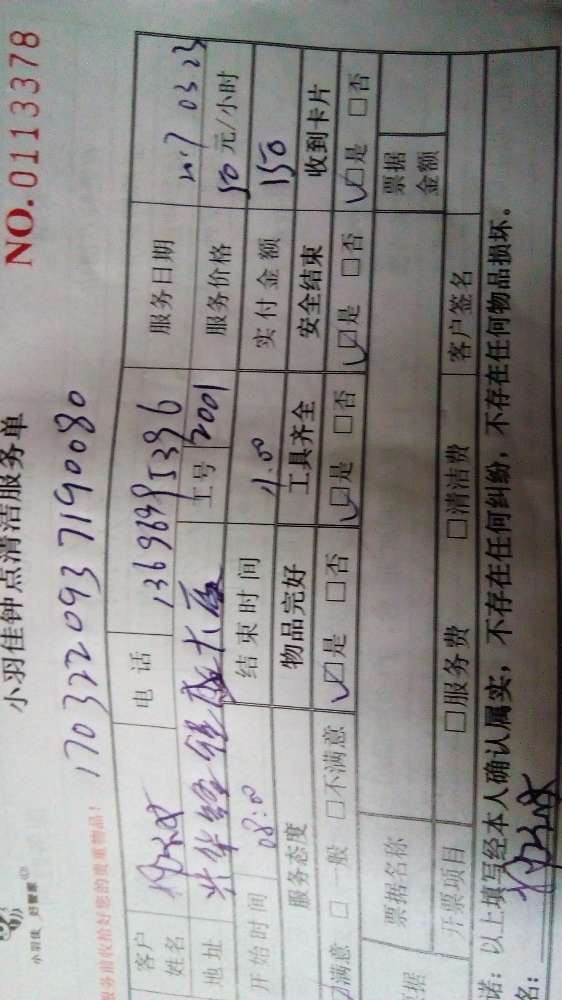 小羽佳 好管家
小羽佳钟点清洁服务单
NO.0113378
服务前收拾好您的贵重物品!
1703220937190080
客户姓名 电 话 13696895396 服务日期 2017 03 23
地址 工号 2001 服务价格 50 元/小时
开始时间 08:00 结束时间 11:00 实付金额 150
服务态度 物品完好 工具齐全 安全结束 收到卡片
☑满意 □一般 □不满意 ☑是 □否 ☑是 □否 ☑是 □否 ☑是 □否
票据名称 票据金额
开票项目 □服务费 □清洁费 客户签名
诺:以上填写经本人确认属实,不存在任何纠纷,不存在任何物品损坏。
名: